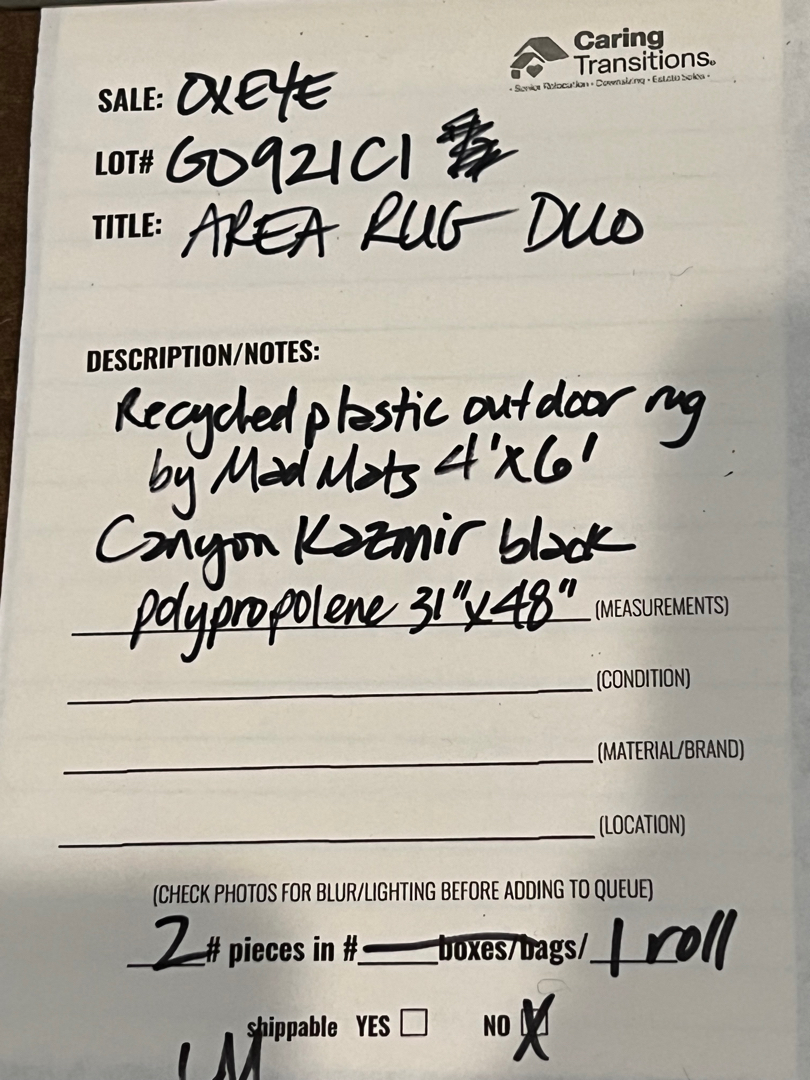 Caring
Transitions®
• Senior Relocation • Downsizing • Estate Sales •
SALE: OXEYE
LOT# GO921C1
TITLE: AREA RUG DUO
DESCRIPTION/NOTES:
Recycled plastic outdoor rug
by Mad Mats 4'x6'
Canyon Kazmir black
polypropolene 31"x48" (MEASUREMENTS)
(CONDITION)
(MATERIAL/BRAND)
(LOCATION)
(CHECK PHOTOS FOR BLUR/LIGHTING BEFORE ADDING TO QUEUE)
2 # pieces in # boxes/bags/ 1 roll
shippable YES ☐ NO ☒